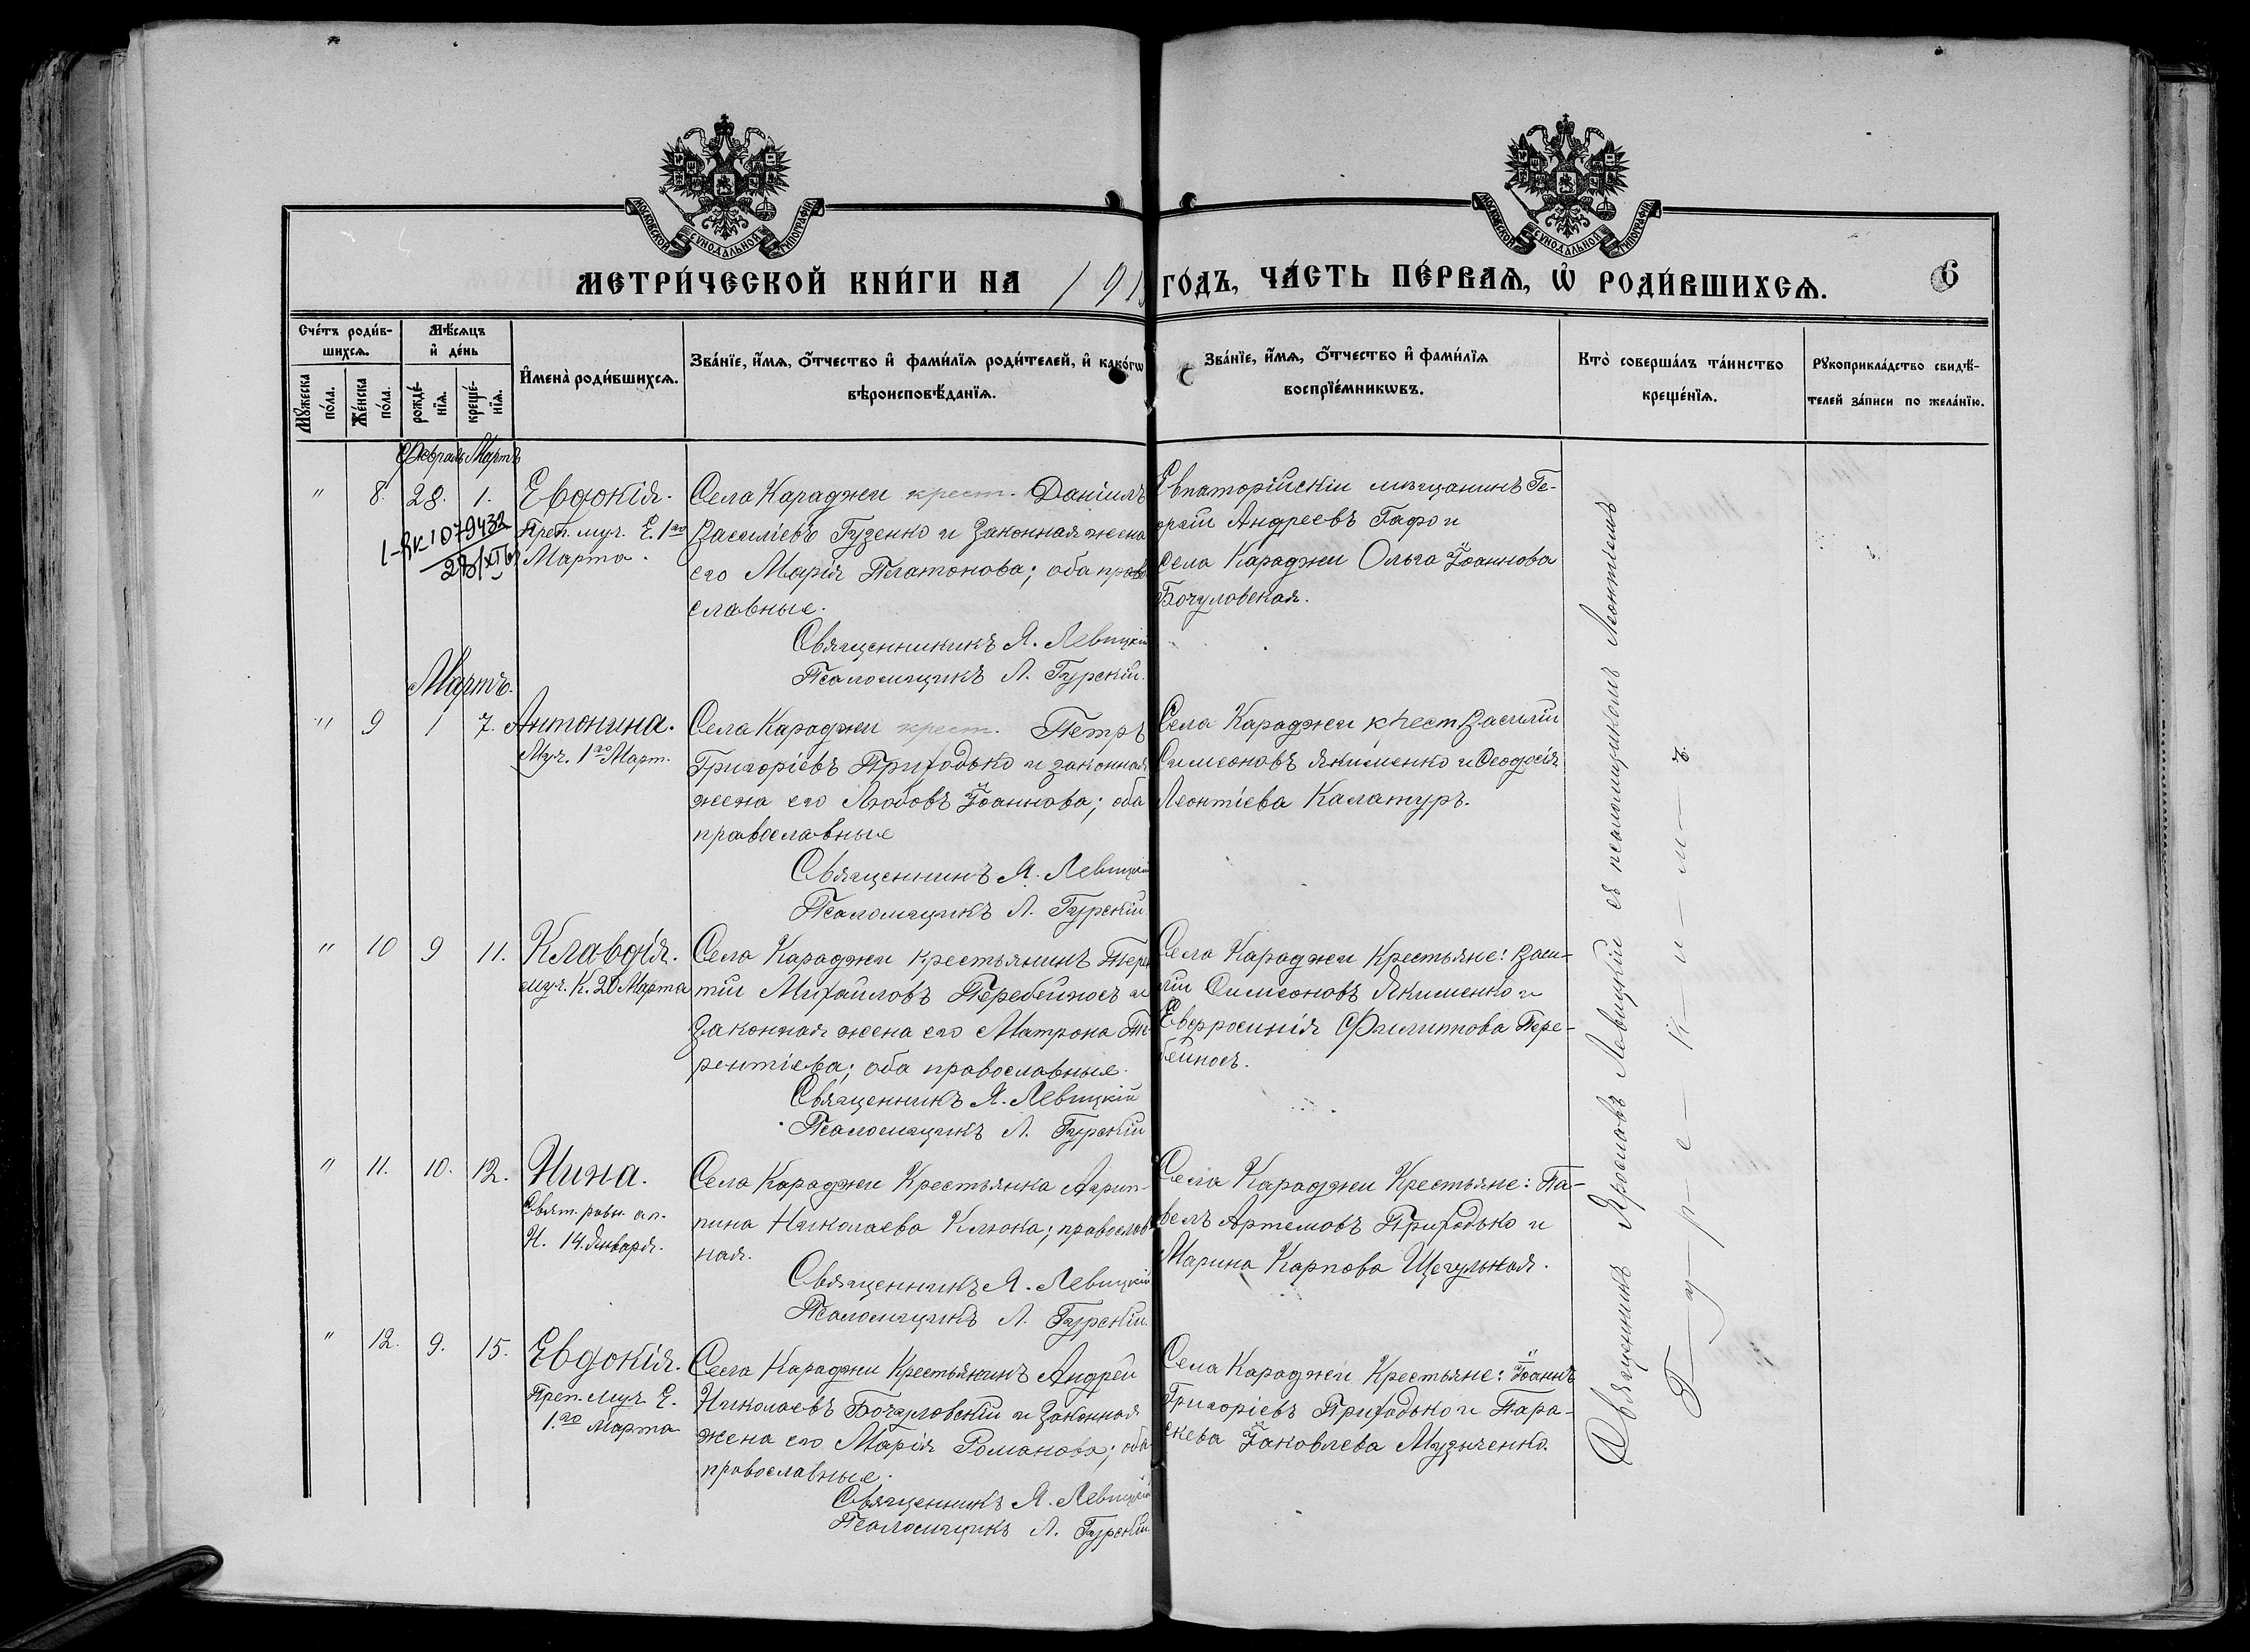 МОСКОВСКОЙ СУНОДАЛЬНОЙ ТИПОГРАФІИ
МОСКОВСКОЙ СУНОДАЛЬНОЙ ТИПОГРАФІИ
МЕТРИ́ЧЕСКОЙ КНИ́ГИ НА 191
ГО́ДЪ, ЧА́СТЬ ПЕ́РВАѦ, Ѡ҆ РОДИ́ВШИХСѦ.
6
Сче́тъ роди́в-
шихсѧ.
Мꙋ́жеска по́ла.
Же́нска по́ла.
Мѣ́сѧцъ и҆ де́нь
рожде́-
нїѧ.
креще́-
нїѧ.
И҆мена̀ роди́вшихсѧ.
Зва́нїе, и҆́мѧ, ѻ҆́тчество и҆ фами́лїѧ роди́телей, и҆ како́гѡ
вѣроисповѣ́данїѧ.
Зва́нїе, и҆́мѧ, ѻ҆́тчество и҆ фами́лїѧ
воспрїе́мникѡвъ.
Кто̀ соверша́лъ та́инство
креще́нїѧ.
Рꙋкоприкла́дство свидѣ́-
телей за́писи по жела́нїю.
Февраль Мартъ
" 8. 28. 1. Евдокія.
1-ЯК 1079432
Преп. муч. Е. 1го
Марта.
Села Караджи крест. Даніилъ
Василіевъ Гузенко и законная жена
его Марія Платонова; оба право
славные.
Священникъ Я. Левицкій
Псаломщикъ Л. Гурскій.
Евпаторійскій мѣщанинъ Ге-
оргій Андреевъ Гафо и
села Караджи Ольга Іоаннова
Бочуловская.
Мартъ.
" 9 1 7. Антонина.
Муч. 1го Март.
Села Караджи крест. Петръ
Григоріевъ Приходько и законная
жена его Любовь Іоаннова; оба
православные
Священникъ Я. Левицкій
Псаломщикъ Л. Гурскій.
Села Караджи крест Василій
Симеоновъ Якименко и Ѳеодосія
Леонтіева Каламуръ.
" 10 9 11. Клавдія.
муч. К. 20 Марта
Села Караджи крестьянинъ Терен
тій Михайловъ Перебейносъ и
законная жена его Матрона Те
рентіева; оба православные.
Священникъ Я. Левицкій
Псаломщикъ Л. Гурскій
Села Караджи Крестьяне: Васи-
лій Симеоновъ Якименко и
Евфросинія Филиппова Пере-
бейносъ.
" 11. 10. 12. Нина.
Свят. равн. ап.
Н. 14. Января.
Села Караджи Крестьянка Агрип-
пина Николаева Клюка; православ
ная.
Священникъ Я. Левицкій
Псаломщикъ Л. Гурскій.
Села Караджи Крестьяне: Па-
велъ Артемовъ Приходько и
Марина Карпова Щегульная.
" 12. 9. 15. Евдокія.
Преп. муч Е.
1.го Марта
Села Караджи Крестьянинъ Андрей
Николаевъ Бочуловскій и законная
жена его Марія Романова; оба
православные.
Священникъ Я. Левицкій
Псаломщикъ Л. Гурскій.
Села Караджи Крестьяне: Іоаннъ
Григоріевъ Приходько и Пара-
скева Іаковлева Музыченко.
Священникъ Ярославъ Левицкій съ псаломщикомъ Леонтіемъ
Г—у—р—с—к—и—м—ъ.